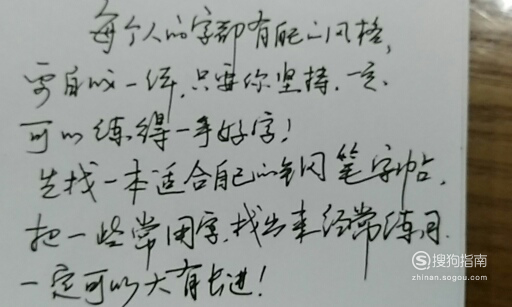 每个人的字都有自己的风格,
要自成一体,只要你坚持,一定
可以练得一手好字!
先找一本适合自己的钢笔字帖,
把一些常用字,找出来经常练习.
一定可以大有长进!
搜狗指南
zhinan.sogou.com